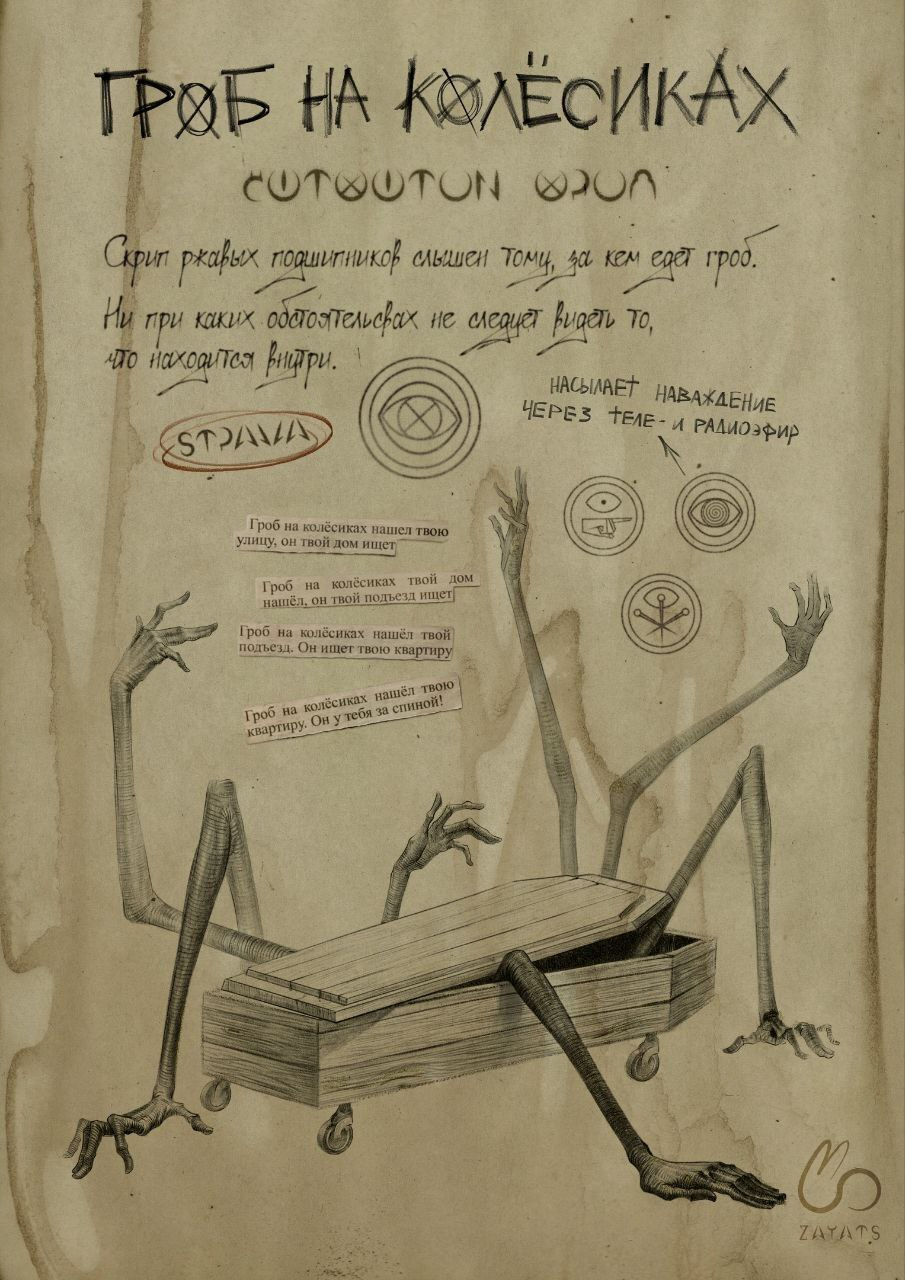 ГРОБ НА КОЛЁСИКАХ
Скрип ржавых подшипников слышен тому, за кем едет гроб.
Ни при каких обстоятельсвах не следует видеть то,
что находится внутри.
НАСЫЛАЕТ НАВАЖДЕНИЕ
ЧЕРЕЗ ТЕЛЕ- И РАДИОЭФИР
Гроб на колёсиках нашел твою
улицу, он твой дом ищет
Гроб на колёсиках твой дом
нашёл, он твой подъезд ищет
Гроб на колёсиках нашёл твой
подъезд. Он ищет твою квартиру
Гроб на колёсиках нашёл твою
квартиру. Он у тебя за спиной!
ZAYATS